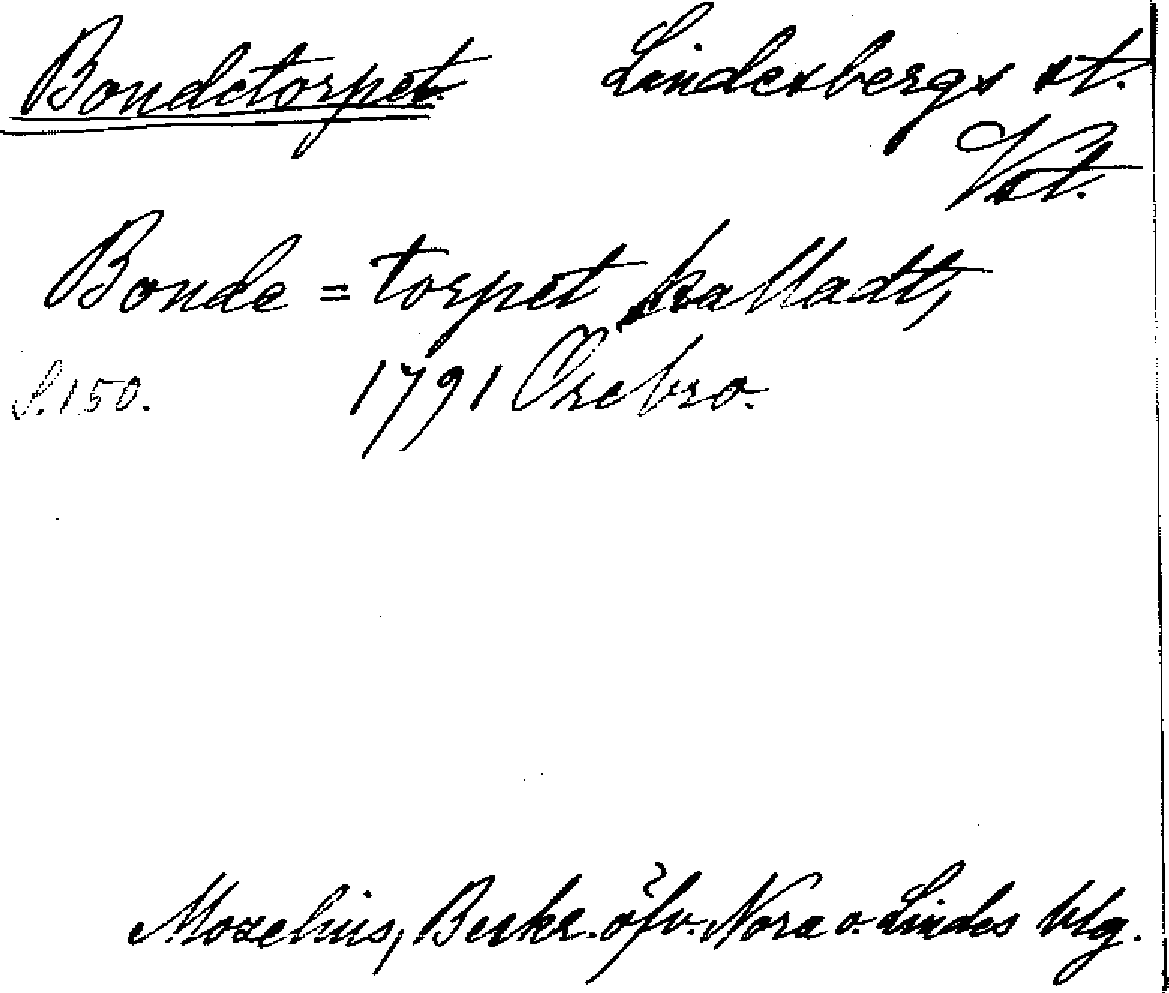 Bondetorpet. Lindesbergs st.
Vstl.
Bonde = torpet kalladt,
S. 150. 1791 Örebro.
Mozelius, Beskr. öfv. Nora o. Lindes blg.